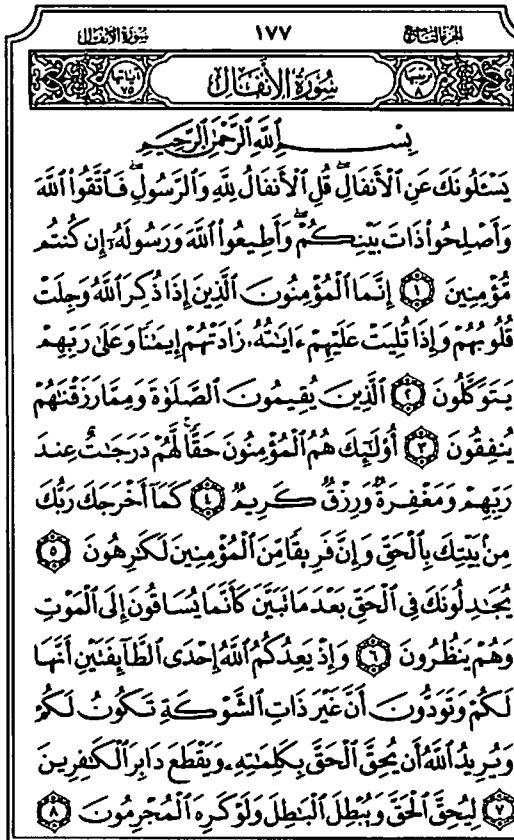 الجزء التاسع ١٧٧ سورة الأنفال
ترتيبها ٨ سُورَةُ الأَنْفَالِ آياتها ٧٥
بِسْمِ اللَّهِ الرَّحْمَٰنِ الرَّحِيمِ
يَسْـَٔلُونَكَ عَنِ ٱلْأَنفَالِۖ قُلِ ٱلْأَنفَالُ لِلَّهِ وَٱلرَّسُولِۖ فَٱتَّقُوا۟ ٱللَّهَ
وَأَصْلِحُوا۟ ذَاتَ بَيْنِكُمْۖ وَأَطِيعُوا۟ ٱللَّهَ وَرَسُولَهُۥٓ إِن كُنتُم
مُّؤْمِنِينَ ١ إِنَّمَا ٱلْمُؤْمِنُونَ ٱلَّذِينَ إِذَا ذُكِرَ ٱللَّهُ وَجِلَتْ
قُلُوبُهُمْ وَإِذَا تُلِيَتْ عَلَيْهِمْ ءَايَٰتُهُۥ زَادَتْهُمْ إِيمَٰنًا وَعَلَىٰ رَبِّهِمْ
يَتَوَكَّلُونَ ٢ ٱلَّذِينَ يُقِيمُونَ ٱلصَّلَوٰةَ وَمِمَّا رَزَقْنَٰهُمْ
يُنفِقُونَ ٣ أُو۟لَٰٓئِكَ هُمُ ٱلْمُؤْمِنُونَ حَقًّاۚ لَّهُمْ دَرَجَٰتٌ عِندَ
رَبِّهِمْ وَمَغْفِرَةٌ وَرِزْقٌ كَرِيمٌ ٤ كَمَآ أَخْرَجَكَ رَبُّكَ
مِنۢ بَيْتِكَ بِٱلْحَقِّ وَإِنَّ فَرِيقًا مِّنَ ٱلْمُؤْمِنِينَ لَكَٰرِهُونَ ٥
يُجَٰدِلُونَكَ فِى ٱلْحَقِّ بَعْدَ مَا تَبَيَّنَ كَأَنَّمَا يُسَاقُونَ إِلَى ٱلْمَوْتِ
وَهُمْ يَنظُرُونَ ٦ وَإِذْ يَعِدُكُمُ ٱللَّهُ إِحْدَى ٱلطَّآئِفَتَيْنِ أَنَّهَا
لَكُمْ وَتَوَدُّونَ أَنَّ غَيْرَ ذَاتِ ٱلشَّوْكَةِ تَكُونُ لَكُمْ
وَيُرِيدُ ٱللَّهُ أَن يُحِقَّ ٱلْحَقَّ بِكَلِمَٰتِهِۦ وَيَقْطَعَ دَابِرَ ٱلْكَٰفِرِينَ
٧ لِيُحِقَّ ٱلْحَقَّ وَيُبْطِلَ ٱلْبَٰطِلَ وَلَوْ كَرِهَ ٱلْمُجْرِمُونَ ٨